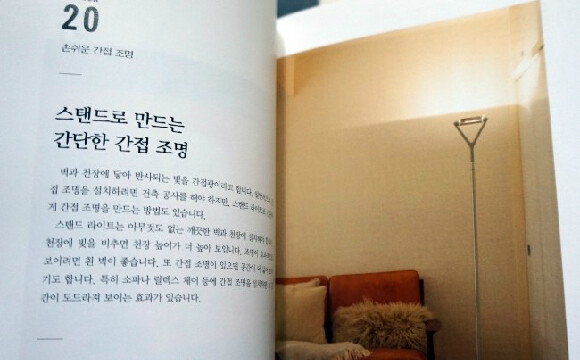 20
손쉬운 간접 조명
스탠드로 만드는
간단한 간접 조명
벽과 천장에 닿아 반사되는 빛을 간접광이라고 합니다.
접 조명을 설치하려면 건축 공사를 해야 하지만, 스탠드 라이트로
게 간접 조명을 만드는 방법도 있습니다.
스탠드 라이트는 아무것도 없는 깨끗한 벽과 천장이
천장에 빛을 비추면 천장 높이가 더 높아 보입니다.
보이려면 흰 벽이 좋습니다. 또 간접 조명이 있으면 공간이
기도 합니다. 특히 소파나 릴랙스 체어 등에 간접 조명을
간이 도드라져 보이는 효과가 있습니다.